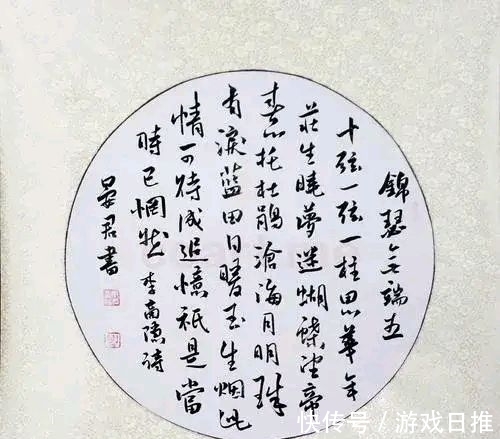 錦瑟無端五
十弦一弦一柱思華年
莊生曉夢迷蝴蝶望帝
春心托杜鵑滄海月明珠
有淚藍田日暖玉生烟此
情可待成追憶祇是當
時已惘然 李商隱詩
晏君書
快传号/游戏日推